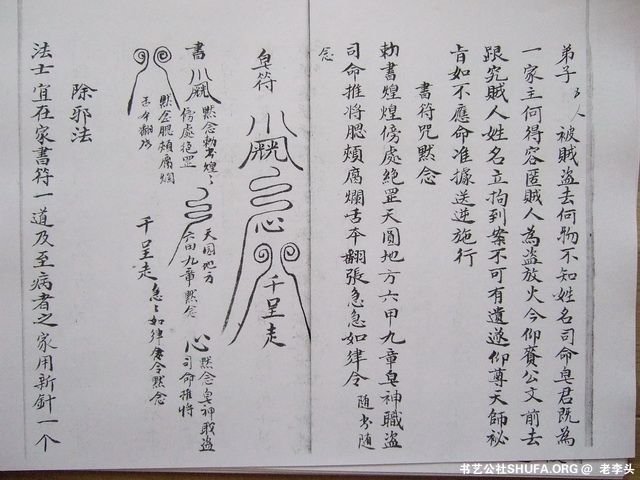 弟子 被賊盗去何物不知姓名司命皂君既為
一家主何得容匿賊人為盗放火今仰賫公文前去
跟究賊人姓名立拘到案不可有遺遂仰尊天師祕
肯如不應命准據送逆施行
書符咒黙念
勅書煌煌傍處絶罡天圓地方六甲九章皂神職盗
司命推將腮頰腐爛舌本翻張急急如律令 随书随
念
皂符
心
千呈走
書
黙念勅書煌〻
傍處绝罡
天圓地方
六甲九章黙念
心
黙念皂神職盗
司命推将
黙念腮頰腐爛
舌本翻張
千呈走
急〻如律令黙念
除邪法
法士宜在家書符一道及至病者之家用新針一个
书艺公社SHUFA.ORG @ 老李头